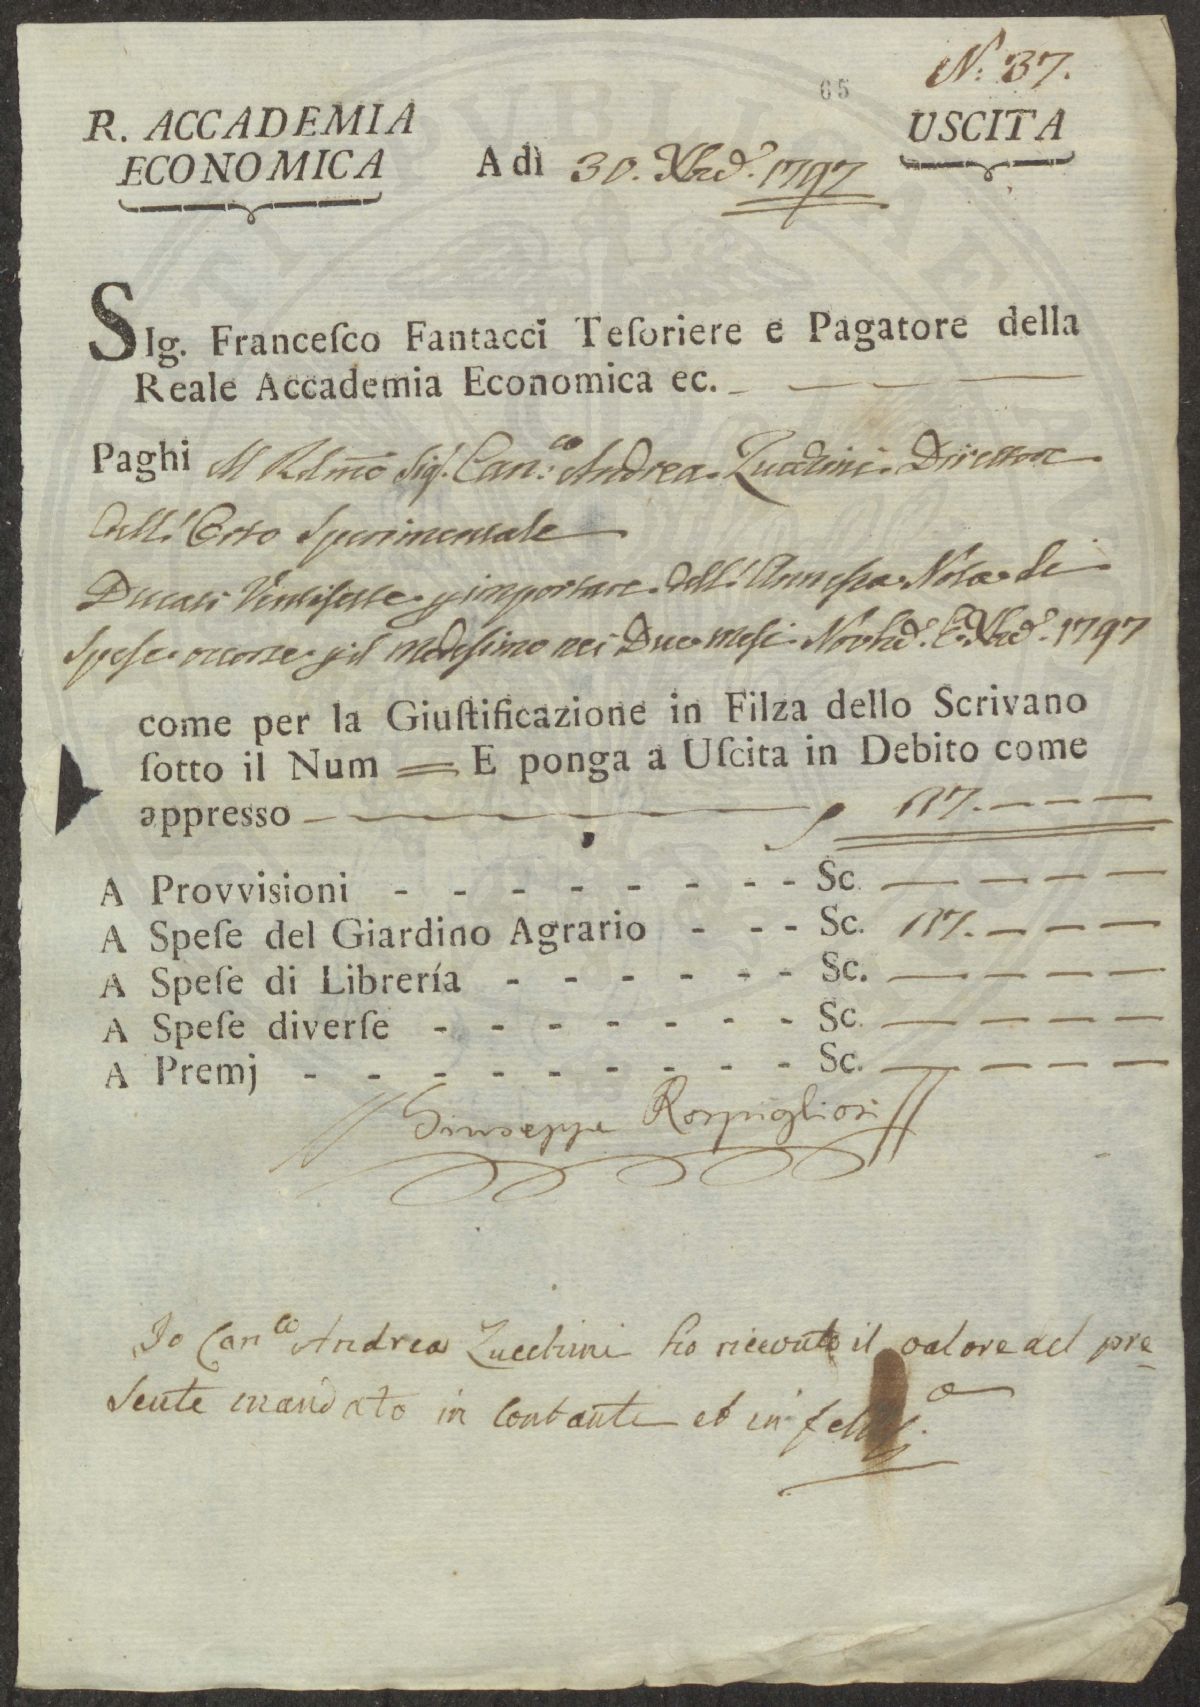 N.° 37.
65
R. ACCADEMIA
ECONOMICA
USCITA
A dì 30. Xbre. 1797
SIg. Franceſco Fantacci Teſoriere e Pagatore della
Reale Accademia Economica ec.
Paghi Al Rdmo Sig.r Can.co Andrea Zucchini Direttore
dell' Orto Sperimentale
Ducati Ventisette p importare dell' Annessa Nota di
Spese occorse p il Medesimo nei Due mesi Novbre. e Xbre. 1797
come per la Giuſtificazione in Filza dello Scrivano
ſotto il Num E ponga a Uſcita in Debito come
appresso
A Provvisioni - - - - - - - - - - Sc.
A Speſe del Giardino Agrario - - - Sc.
A Speſe di Librería - - - - - - - Sc.
A Speſe diverſe - - - - - - - - Sc.
A Premj - - - - - - - - - - Sc.
Giuseppe Rospigliosi
Io Can.co Andrea Zucchini ho ricevuto il valore del pre-
sente mandato in contante et in fede